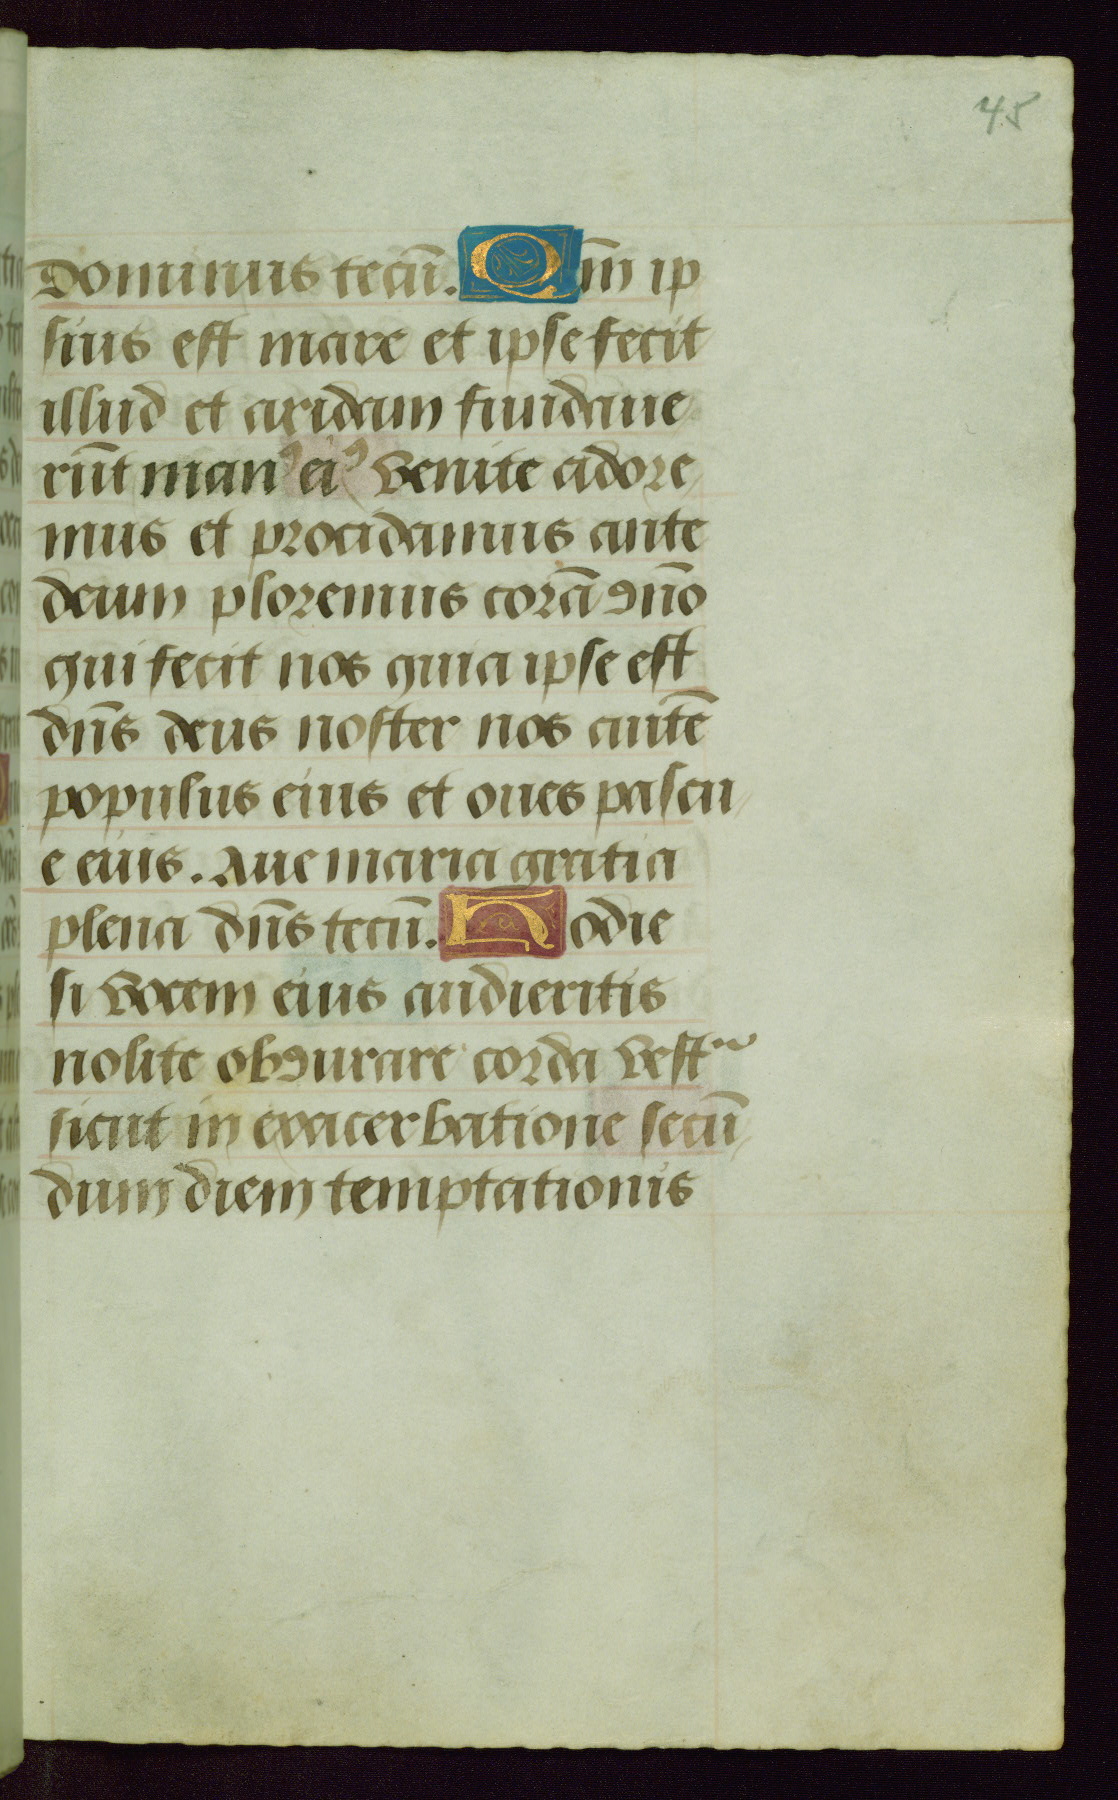 45
dominus tecū. Qm̄ ip
sius est mare et ipse fecit
illud et aridam fundaue
rūt manꝰ eiꝰ venite adore
mus et procidamus ante
deum ploremus corā dn̄o
qui fecit nos quia ipse est
dn̄s deus noster nos autē
populus eius et oues pascu
e eius. Aue maria gratia
plena dn̄s tecū. Hodie
si vocem eius audieritis
nolite obdurare corda vestᷓ
sicut in exacerbatione secū
dum diem temptationis